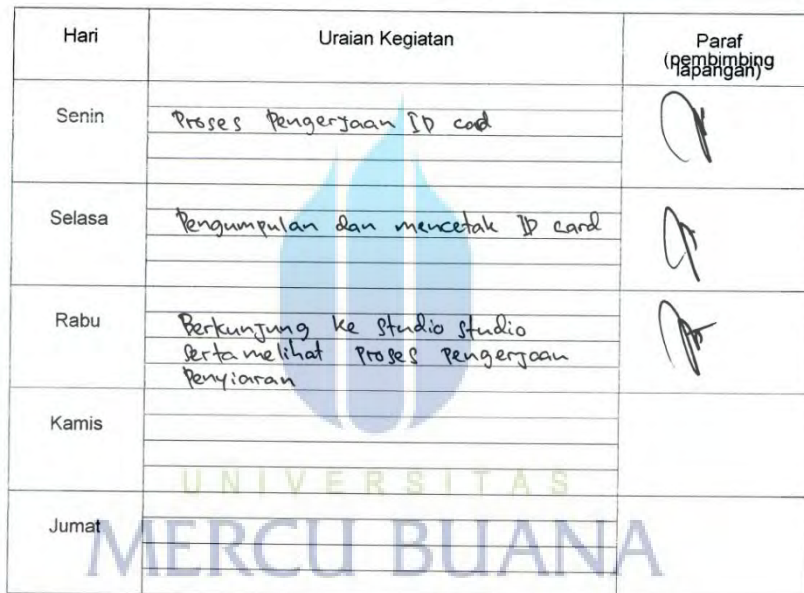 Hari Uraian Kegiatan Paraf
(pembimbing
lapangan)
Senin Proses Pengerjaan ID card
Selasa Pengumpulan dan mencetak ID card
Rabu Berkunjung ke studio studio
serta melihat proses pengerjaan
Penyiaran
Kamis
UNIVERSITAS
Jumat
MERCU BUANA